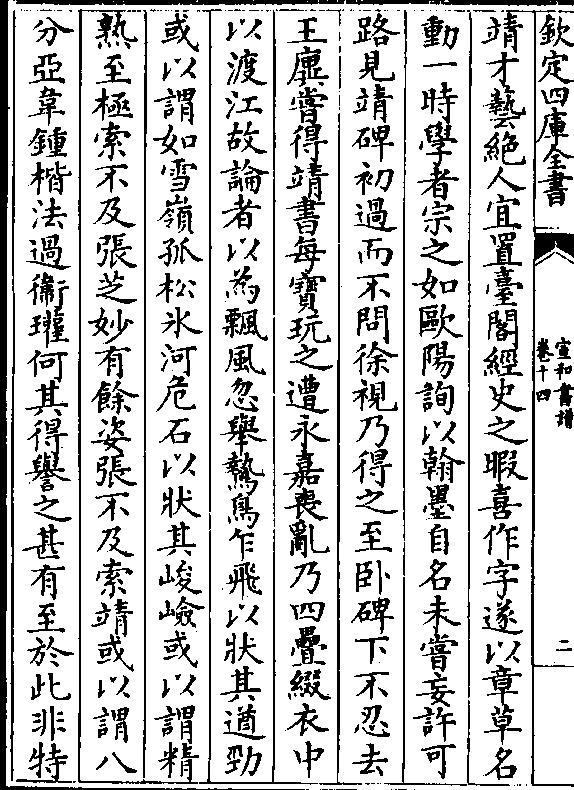 欽定四庫全書
宣和書譜
卷十四
二
靖才藝絶人宜置臺閣經史之暇喜作字遂以章草名
動一時學者宗之如歐陽詢以翰墨自名未嘗妄許可
路見靖碑初過而不問徐視乃得之至卧碑下不忍去
王廙嘗得靖書每寶玩之遭永嘉喪亂乃四疊綴衣中
以渡江故論者以為飄風忽舉鷙鳥乍飛以狀其遒勁
或以謂如雪嶺孤松氷河危石以狀其峻嶮或以謂精
熟至極索不及張芝妙有餘姿張不及索靖或以謂八
分亞韋鍾楷法過衞瓘何其得譽之甚有至於此非特